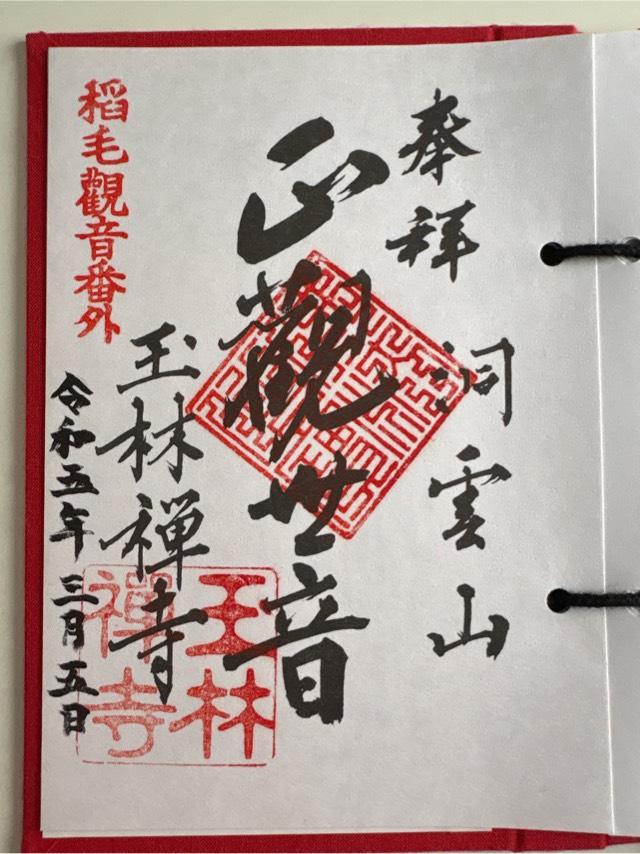 奉拝
洞雲山
正觀世音
玉林禅寺
稻毛觀音番外
令和五年三月五日
玉林
禅寺